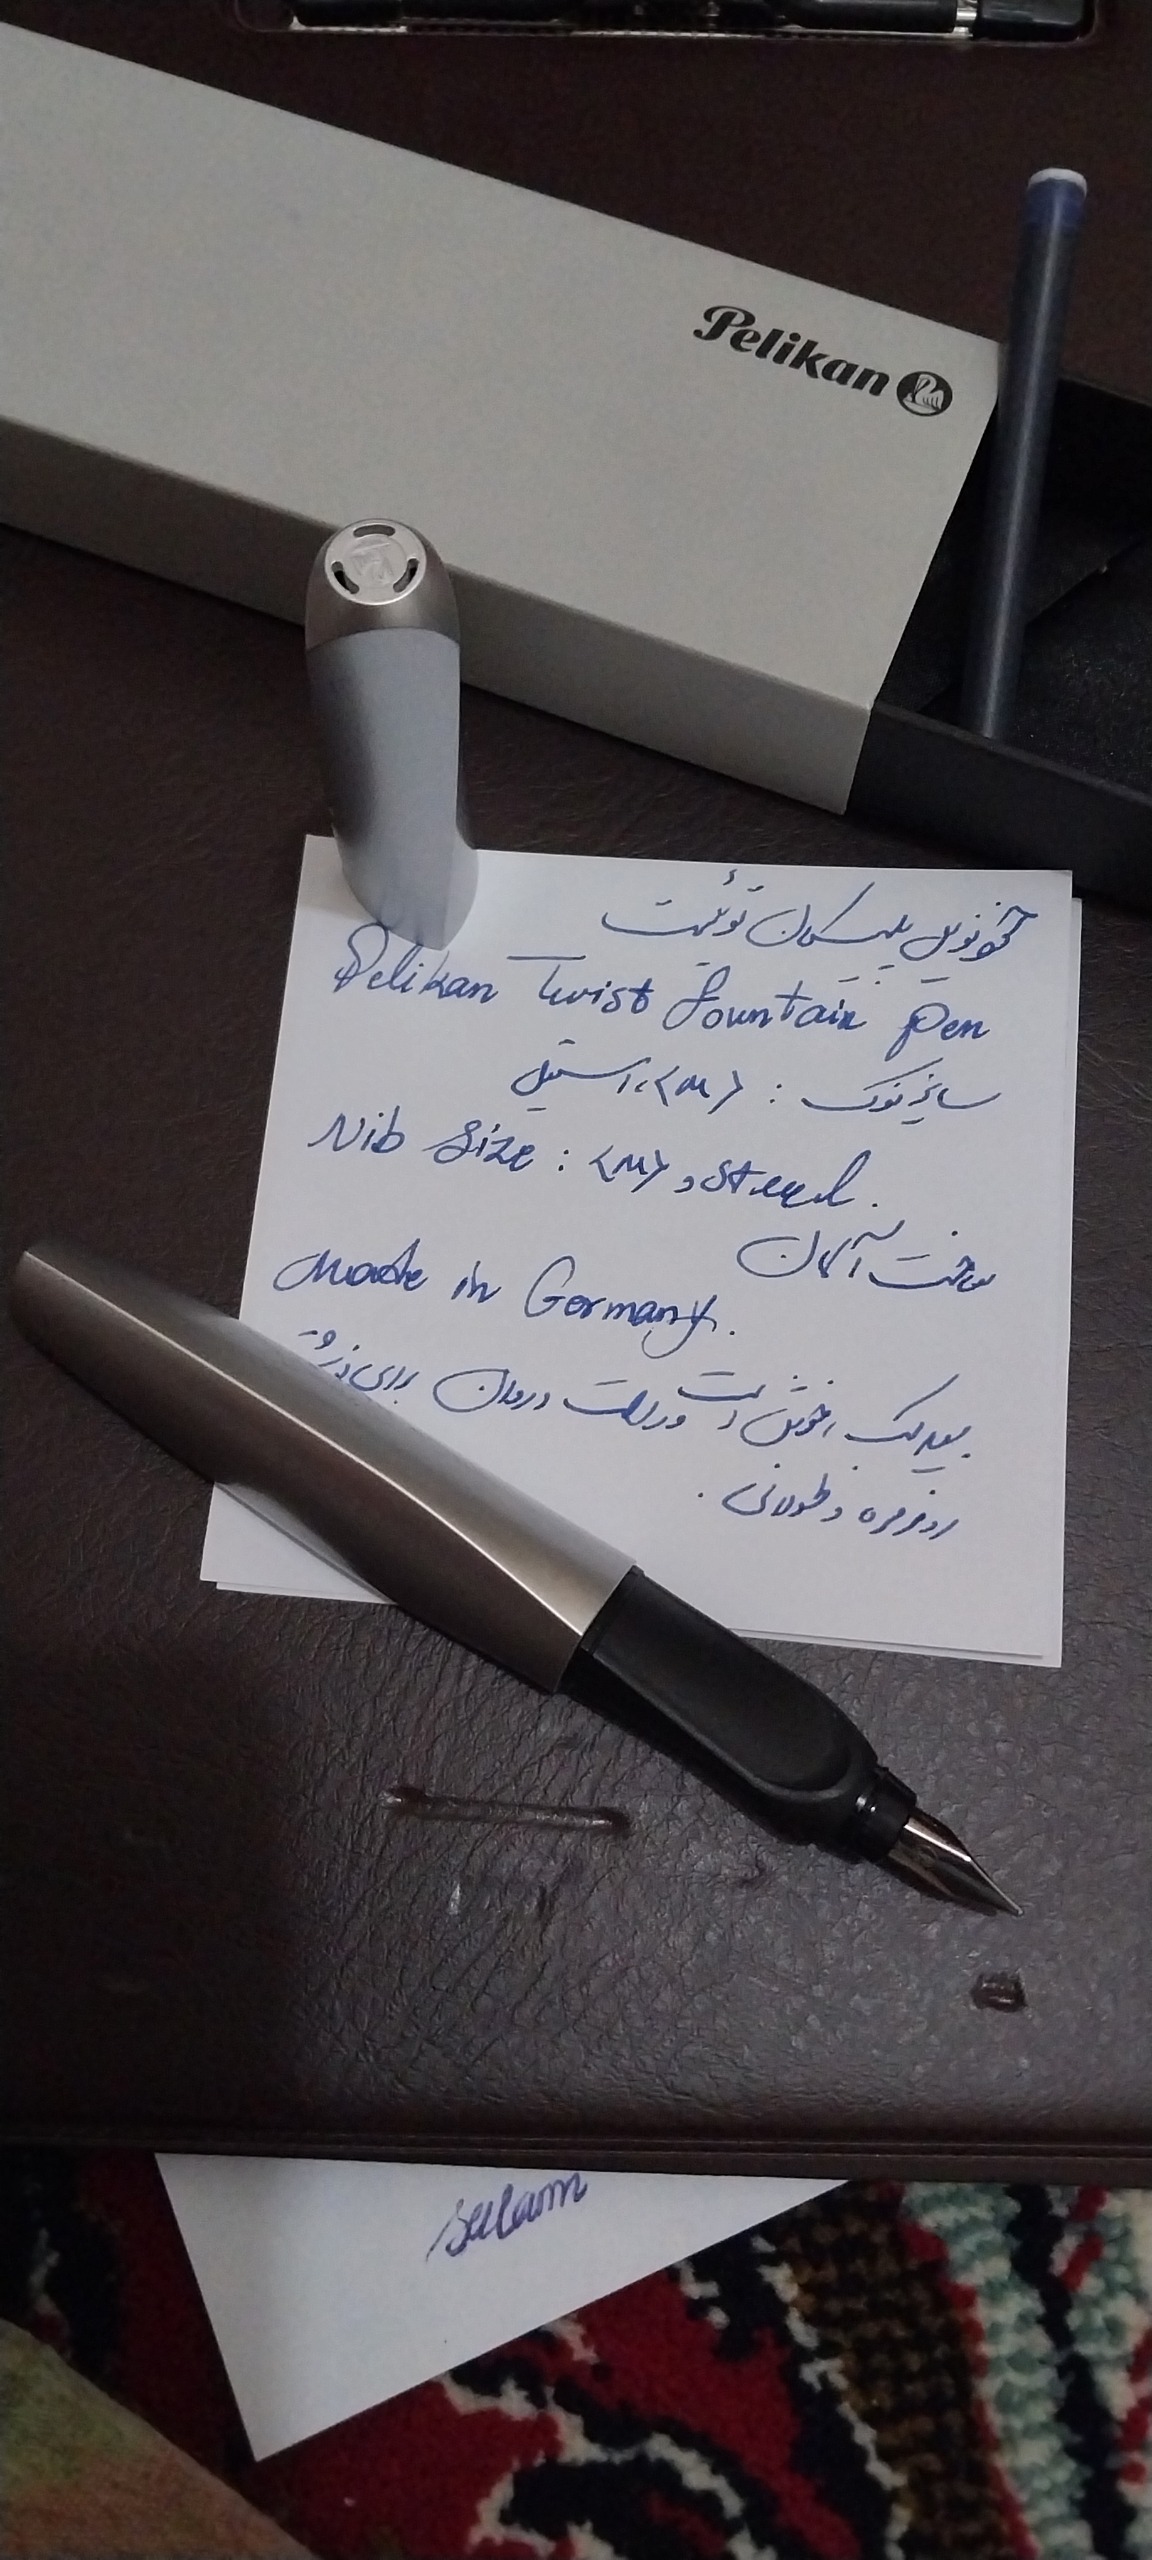 Pelikan
خودنویس پلیکان توئیست
Pelikan Twist Fountain Pen
سایز نوک : <M>، استیل
Nib Size : <M>, Steel.
ساخت آلمان
Made in Germany.
بسیار خوش دست و روان برای
روزمره و طولانی .